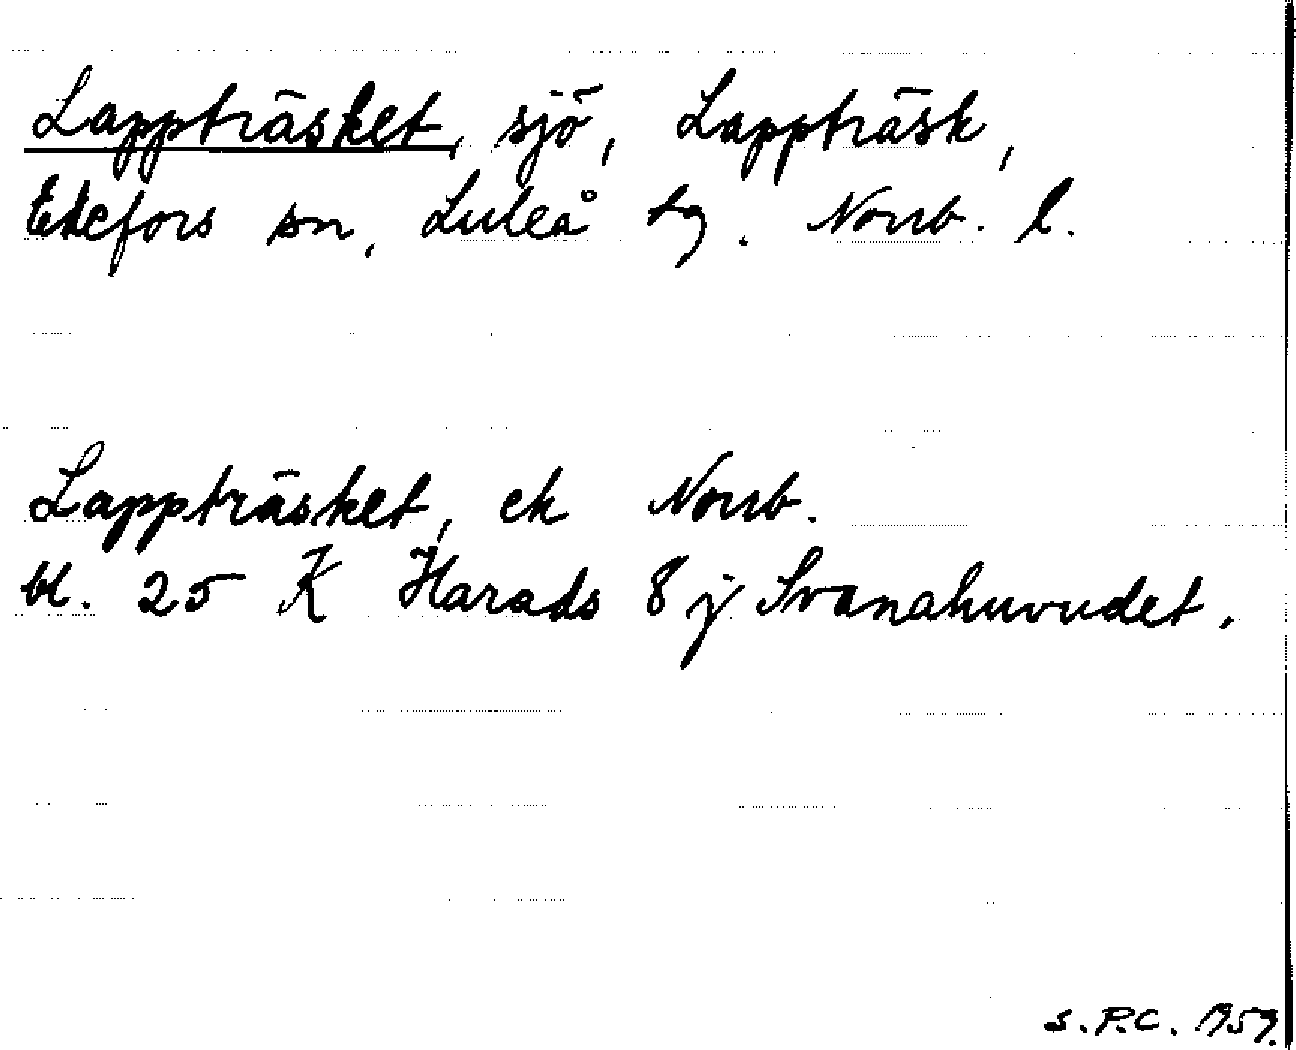 Lappträsket, sjö, Lappträsk,
Edefors sn, Luleå tg. Norrb. l.
Lappträsket, ek Norrb.
bl. 25 K Harads 8 j Svanahuvudet.
S.P.C. 1959.